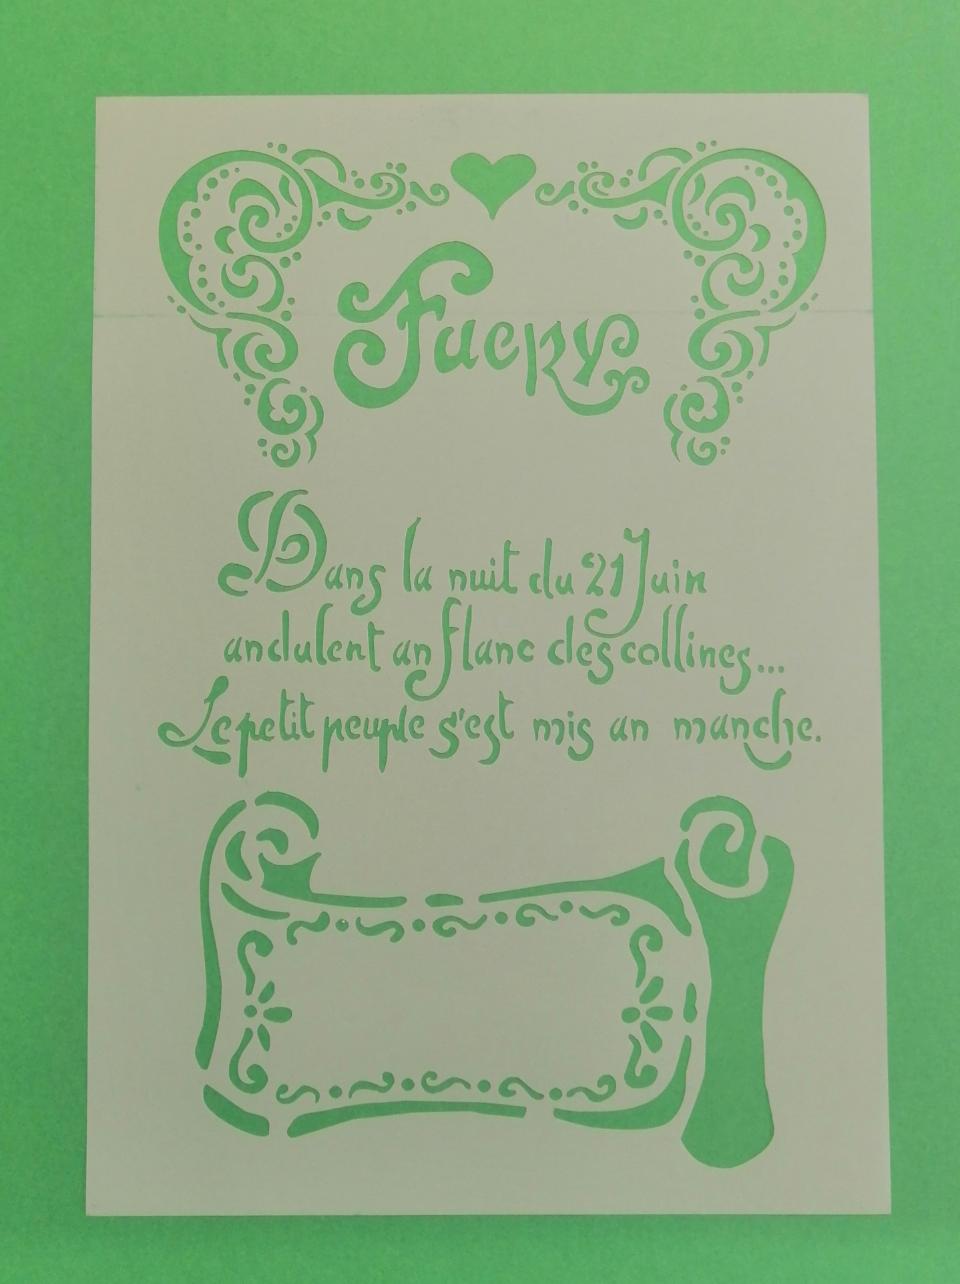 Faery
Dans la nuit du 21 Juin
andulent an flanc des collines...
Le petit peuple s'est mis an manche.